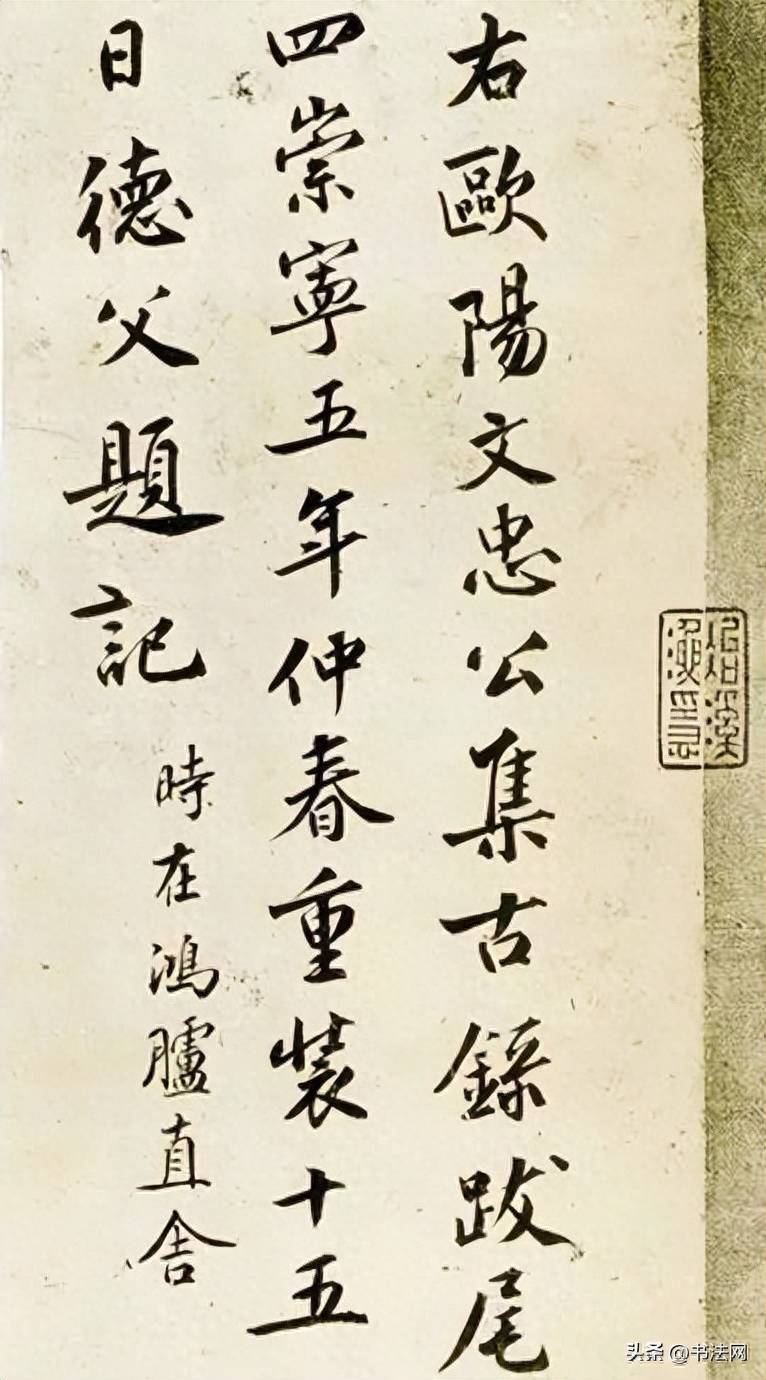 右歐陽文忠公集古錄跋尾
四崇寧五年仲春重裝十五
日德父題記
時在鴻臚直舍
头条 @书法网